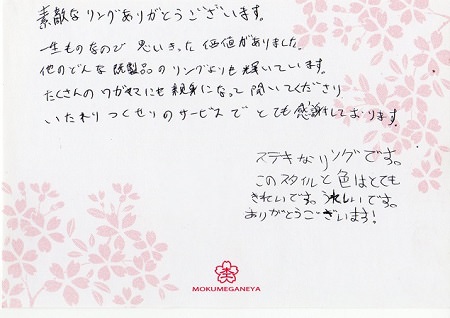 素敵なリングありがとうございます。
一生ものなので 思いきった 価値がありました。
他のどんな 既製品の リングよりも 輝いています。
たくさんの ワガママにも 親身になって 聞いてくださり
いたれり つくせりの サービスで とても 感謝しております。
ステキなリングです。
このスタイルと色はとても
きれいです。うれしいです。
ありがとうございます!
MOKUMEGANEYA